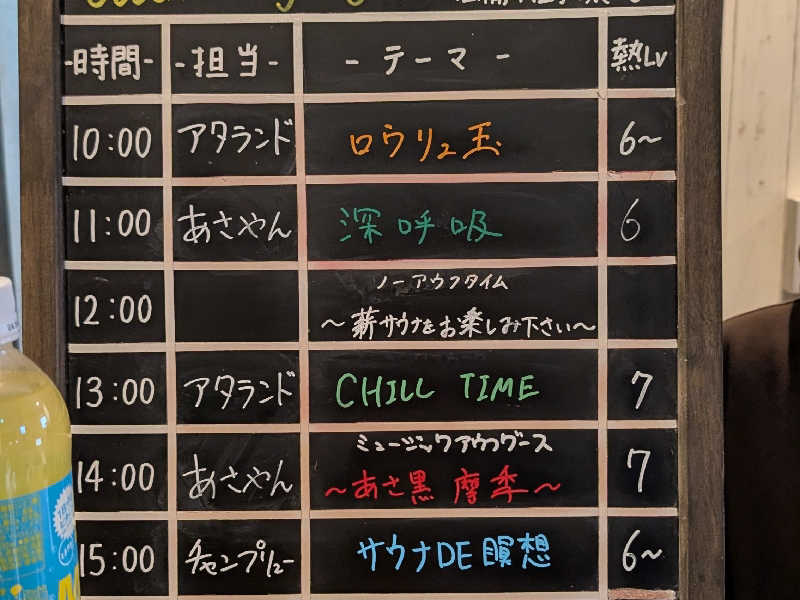 -時間- -担当- -テーマ- 熱Lv
10:00 アタランド ロウリュ玉 6～
11:00 あさやん 深呼吸 6
12:00 ノーアウフタイム
～薪サウナをお楽しみ下さい～
13:00 アタランド CHILL TIME 7
14:00 あさやん ミュージックアウフグース 7
～あさ黒摩季～
15:00 チャンプリュー サウナDE瞑想 6～